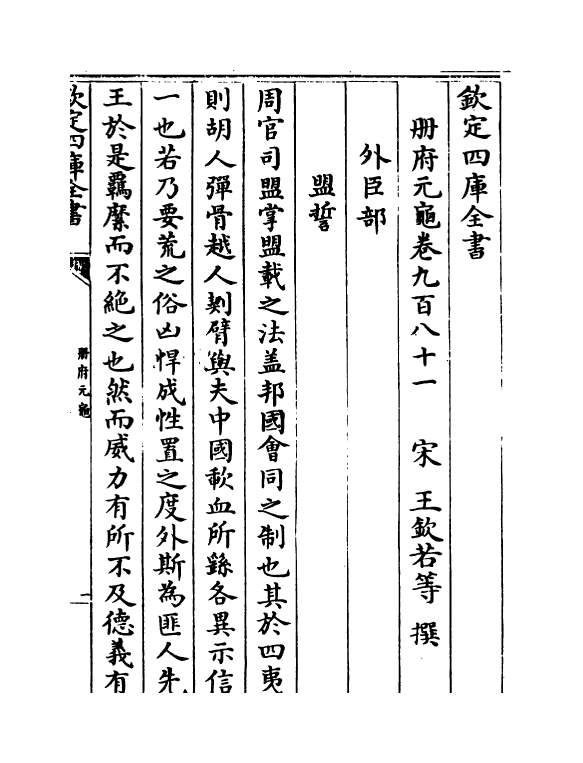 欽定四庫全書
冊府元龜卷九百八十一 宋 王欽若等 撰
外臣部
盟誓
周官司盟掌盟載之法盖邦國會同之制也其於四夷
則胡人彈骨越人剺臂與夫中國歃血所繇各異示信
一也若乃要荒之俗凶悍成性置之度外斯為匪人先
王於是羈縻而不絶之也然而威力有所不及德義有
欽定四庫全書
冊府元龜
一